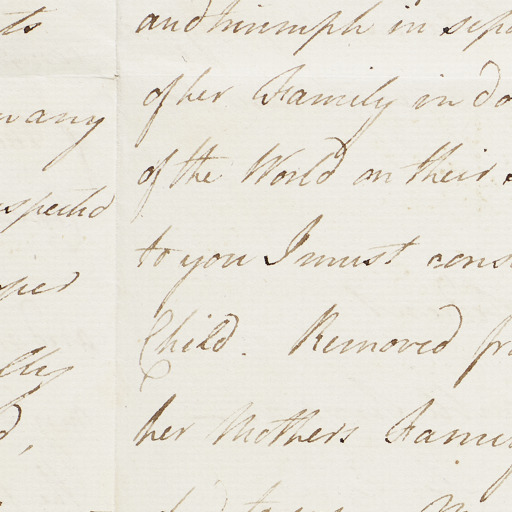 ts
any
spected
per
d,
and triumph in sepa
of her Family in do
of the World on their
to you I must cons
Child. Removed fr
her Mothers Family